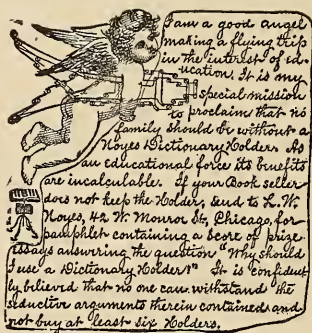 I am a good angel
making a flying trip
in the interest of ed-
ucation. It is my
special mission
to proclaim that no
family should be without a
Noyes Dictionary Holder. As
an educational force its benefits
are incalculable. If your Bookseller
does not keep the Holder, send to L. W.
Noyes, 42 W. Monroe St, Chicago, for
pamphlet containing a score of prize
essays answering the question "Why should
I use a Dictionary Holder?" It is confident
ly believed that no one can withstand the
seductive arguments therein contained and
not buy at least six Holders.